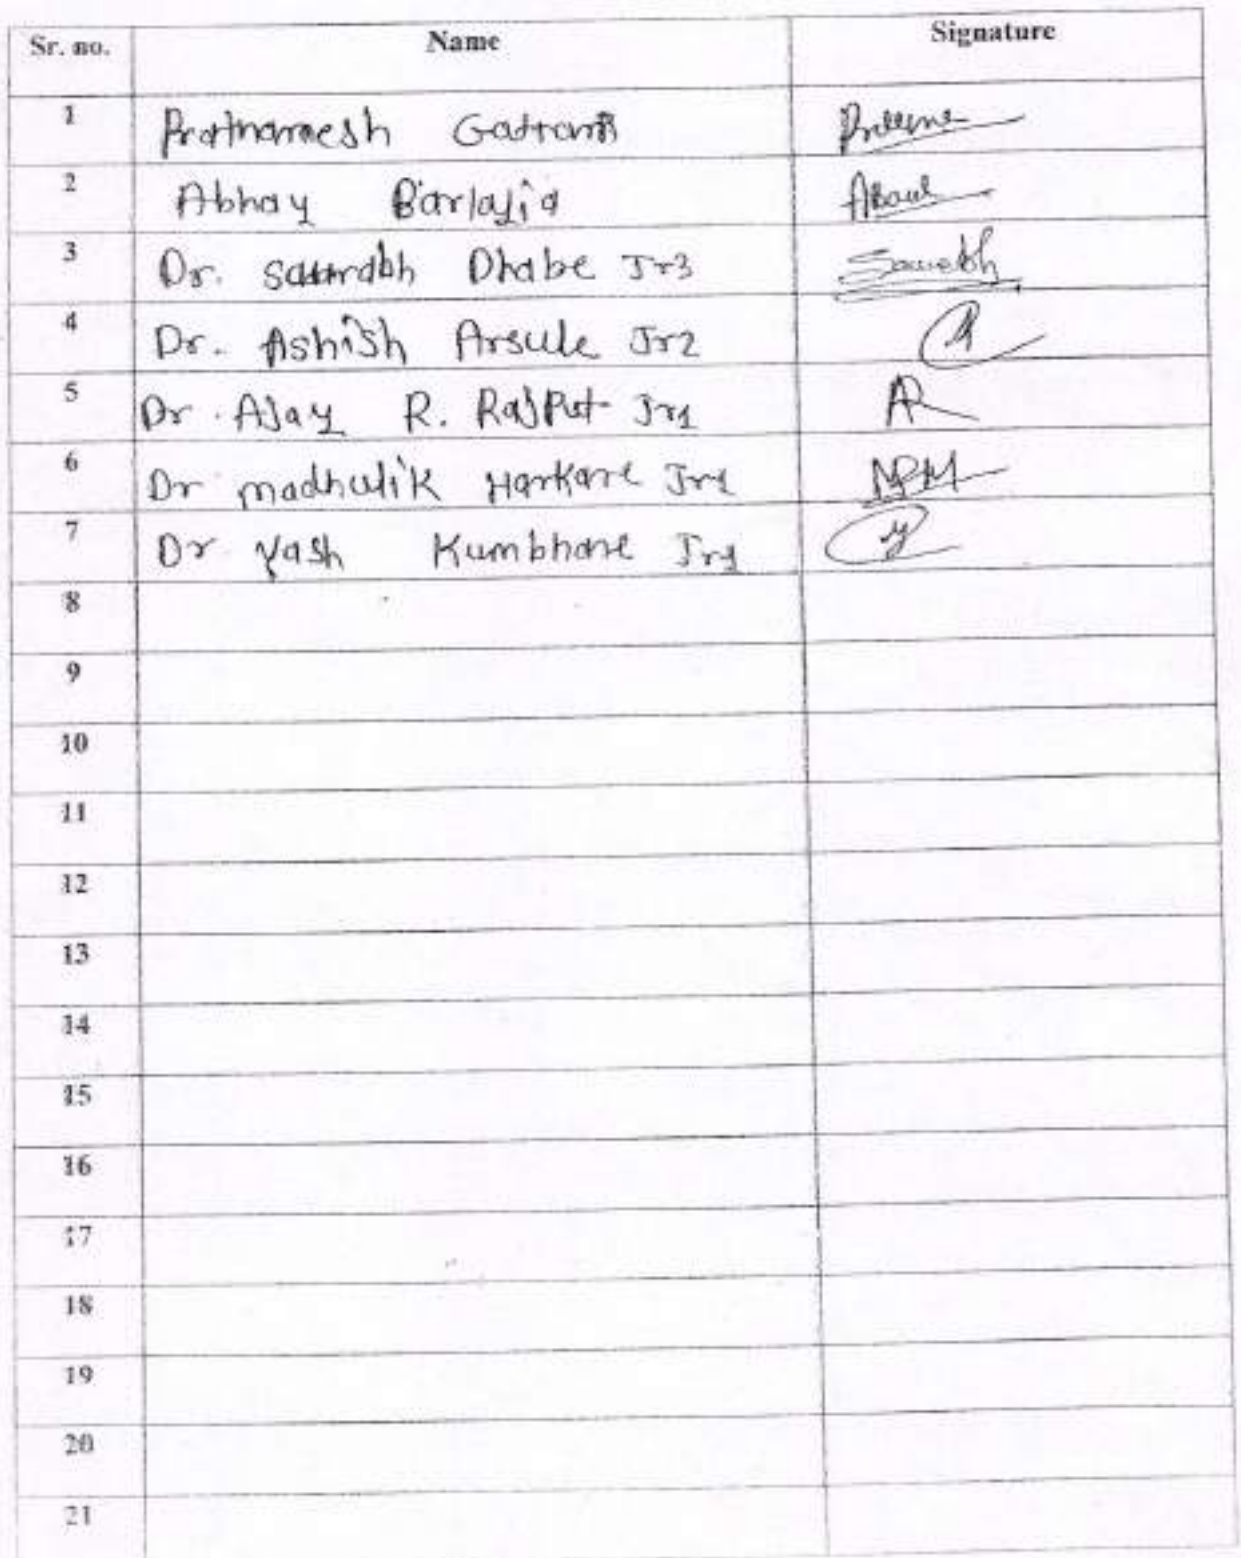 Sr. no. Name Signature
1 Prathamesh
2 Abhay
3 Dr. Saurabh Dhabe Jr3 Saurabh
4 Dr. Ashish Arsule Jr2
5 Dr. Ajay R. Rajput Jr1 AR
6 Dr madhulik Harkare Jr1
7 Dr Yash Kumbhare Jr1 y
8
9
10
11
12
13
14
15
16
17
18
19
20
21